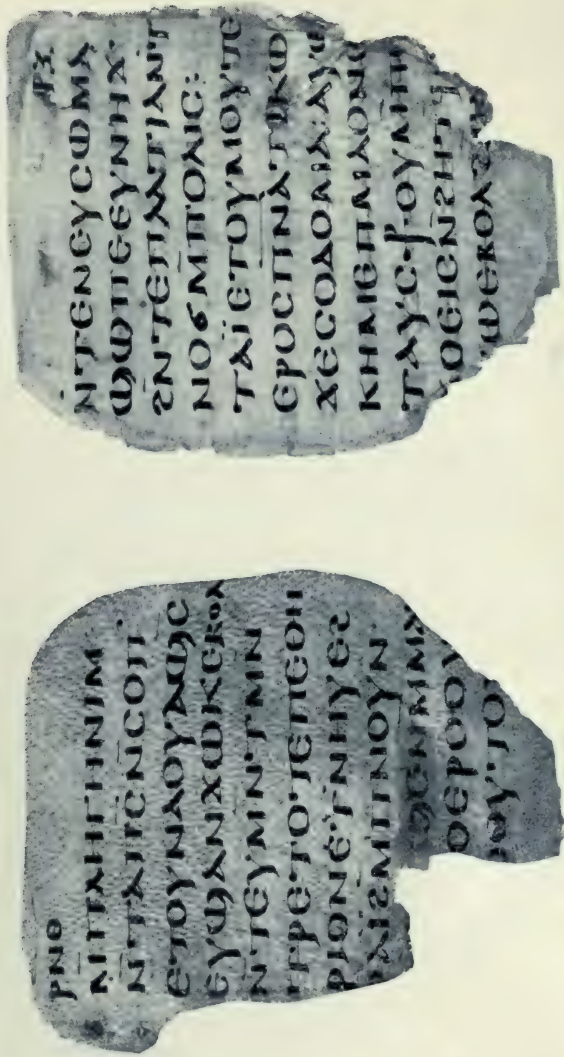 ⲣⲛⲑ
ⲙⲡⲗⲏⲅⲏⲛⲓⲙ
ⲛ̄ⲧⲁⲓ̈ⲡⲉⲛⲥⲟⲡ·
ⲉⲧⲟⲩⲛⲁⲟⲩⲁϣⲥ
ⲉⲩϣⲁⲛϫⲱⲕⲉⲃⲟⲗ
ⲛ̄ⲧⲉⲩⲙⲛ̄ⲧⲙⲛ
ⲧⲣⲉⲧⲟⲧⲉⲡⲉⲑⲏ
ⲣⲓⲟⲛⲉⲧⲛⲏⲩⲉϩ
ⲣⲁⲓ̈ϩⲙ̄ⲡⲛⲟⲩⲛ·
ϣⲉⲛⲙⲙⲁ
ⲟⲉⲣⲟⲟⲩ
ⲟⲩⲧⲟ
ⲣⲝ
ⲛ̄ⲧⲉⲛⲉⲩⲥⲱⲙⲁ
ϣⲱⲡⲉⲉⲩⲛⲏϫ·
ϩⲛ̄ⲧⲉⲡⲗⲁⲧⲓⲁⲛⲧ
ⲛⲟϭⲙ̄ⲡⲟⲗⲓⲥ:
ⲧⲁⲓ̈ⲉⲧⲟⲩⲙⲟⲩⲧⲉ
ⲉⲣⲟⲥⲡ̄ⲛ̄ⲁ̄ⲧⲓⲕⲱ
ϫⲉⲥⲟⲇⲟⲙⲁ:ⲁⲩⲱ
ⲕⲏⲙⲉⲡⲙⲁⲟⲛ
ⲧⲁⲩⲥⳁⲟⲩⲙⲡⲉ
ϫⲟⲉⲓⲥⲛ̄ϩⲏⲧϥ
ⲱⲉⲃⲟⲗ